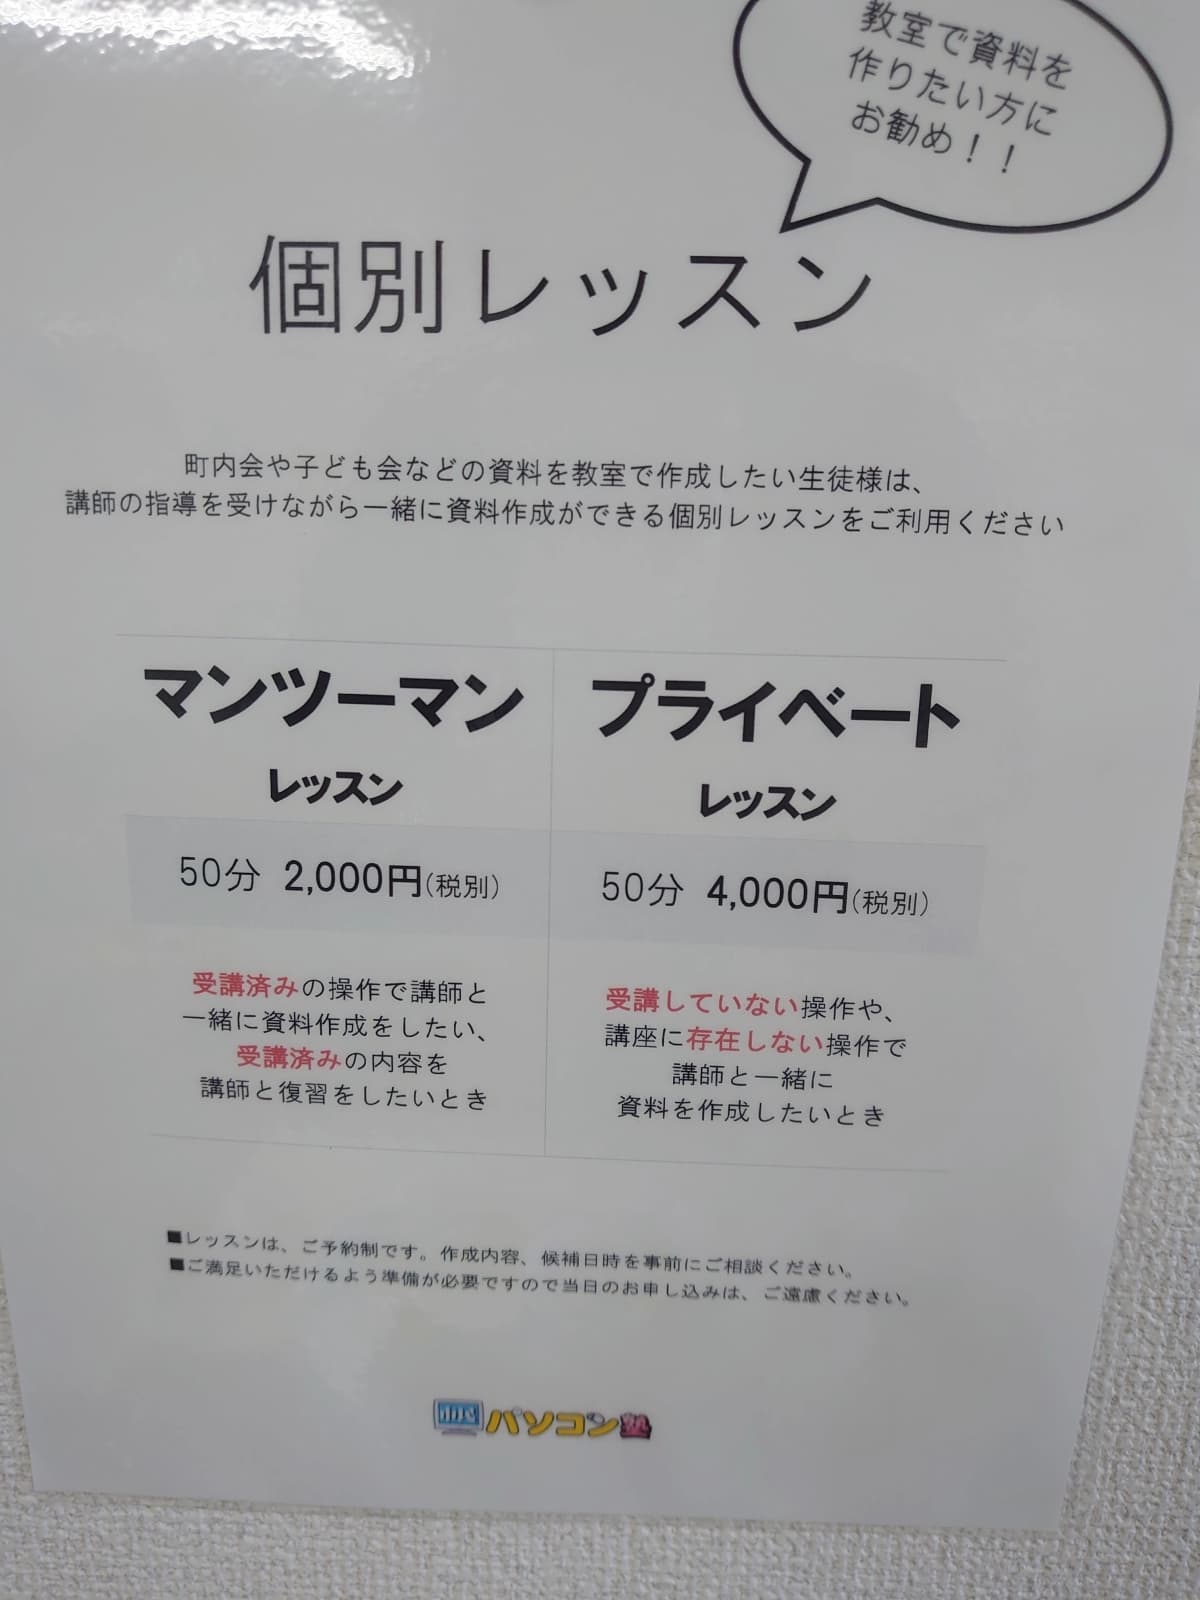 教室で資料を
作りたい方に
お勧め！！
個別レッスン
町内会や子ども会などの資料を教室で作成したい生徒様は、
講師の指導を受けながら一緒に資料作成ができる個別レッスンをご利用ください
マンツーマン
レッスン
50分 2,000円(税別)
受講済みの操作で講師と
一緒に資料作成をしたい、
受講済みの内容を
講師と復習をしたいとき
プライベート
レッスン
50分 4,000円(税別)
受講していない操作や、
講座に存在しない操作で
講師と一緒に
資料を作成したいとき
■レッスンは、ご予約制です。作成内容、候補日時を事前にご相談ください。
■ご満足いただけるよう準備が必要ですので当日のお申し込みは、ご遠慮ください。
パソコン塾